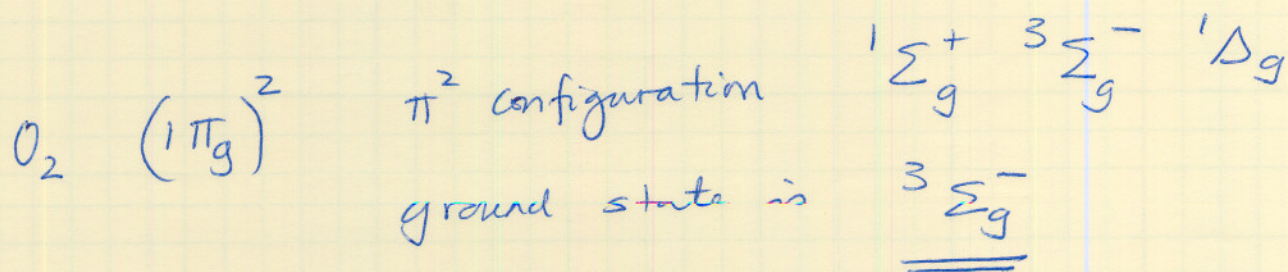 O₂ (1πg)² π² configuration ¹Σg⁺ ³Σg⁻ ¹Δg
ground state is ³Σg⁻